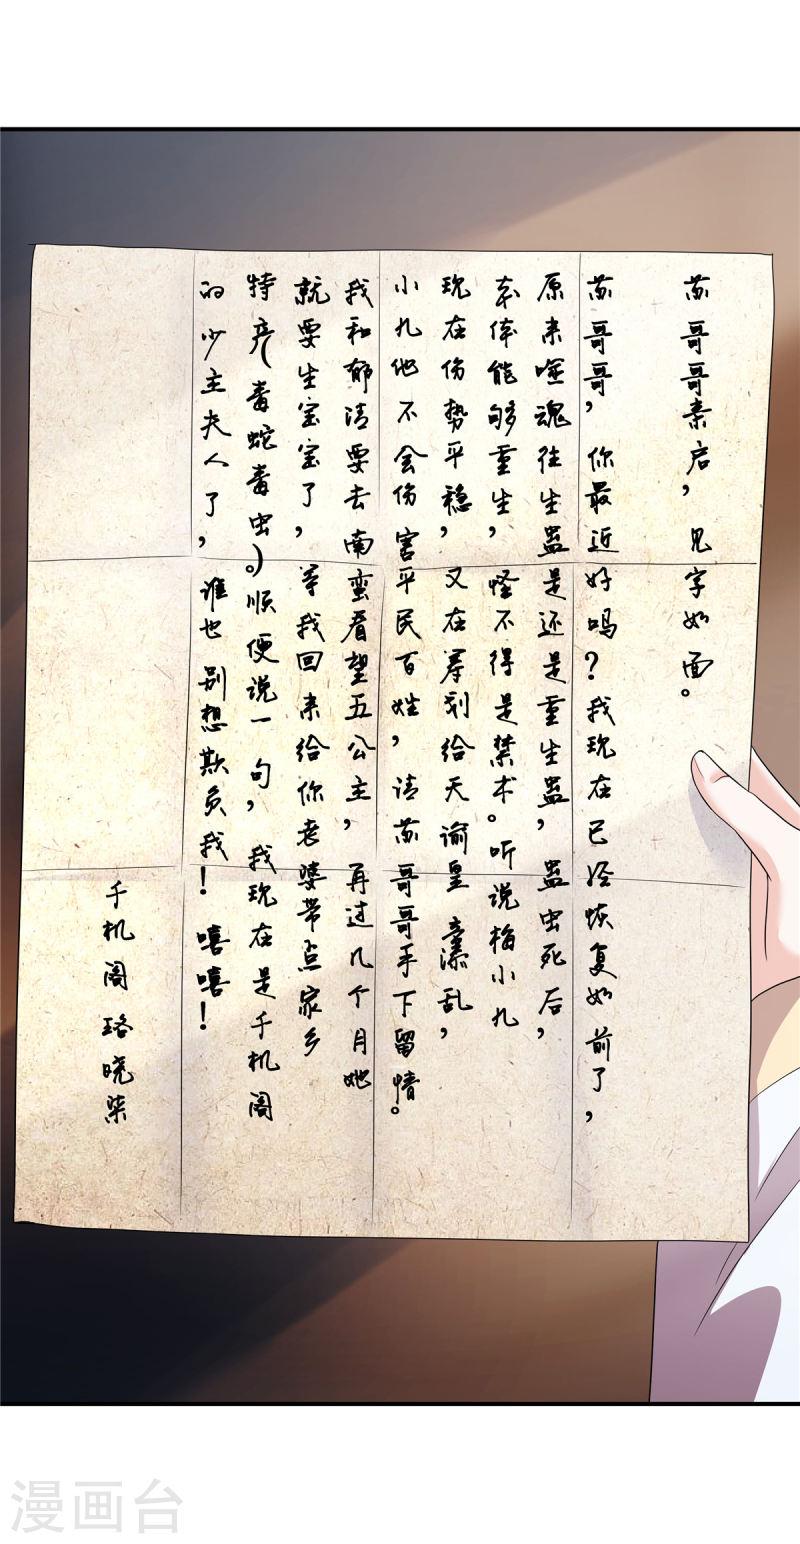 苏哥哥亲启，见字如面。
苏哥哥，你最近好吗？我现在已经恢复如前了，
原来噬魂往生蛊是还是重生蛊，蛊虫死后，
本体能够重生，怪不得是禁术。听说梅小九
现在伤势平稳，又在筹划给天谕皇室添乱，
小九他不会伤害平民百姓，请苏哥哥手下留情。
我和郁清要去南蛮看望五公主，再过几个月她
就要生宝宝了，等我回来给你老婆带点家乡
特产（毒蛇毒虫。）顺便说一句，我现在是千机阁
的少主夫人了，谁也别想欺负我！嘻嘻！
千机阁珞晓柒
漫画台